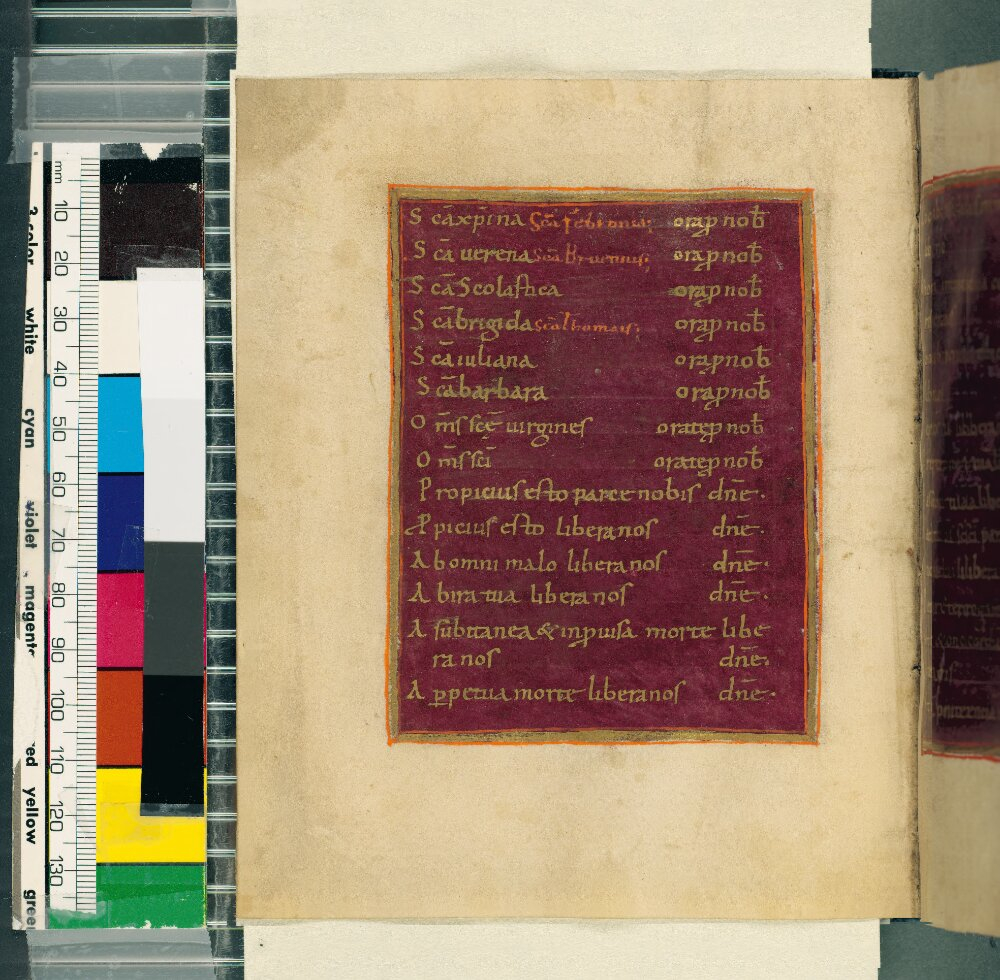 S c̄a xp̄ina Sc̄a orạ p nob̄
S c̄a uerena sc̄a orạ p nob̄
S c̄a Scolastica orạ p nob̄
S c̄a brigida orạ p nob̄
S c̄a iuliana orạ p nob̄
S c̄a barbara orạ p nob̄
O m̄s sc̄ę uirgines orate p nob̄
O m̄s sc̄i orate p nob̄
P ropicius esto parce nobis dn̄e.
P picius esto libera nos dn̄e.
A b omni malo libera nos dn̄e.
A b ira tua libera nos dn̄e.
A subitanea & inpuisa morte libe
ra nos dn̄e.
A ꝑpetua morte libera nos dn̄e.
mm 10 20 30 40 50 60 70 80 90 100 110 120 130
white cyan violet magent red yellow gree